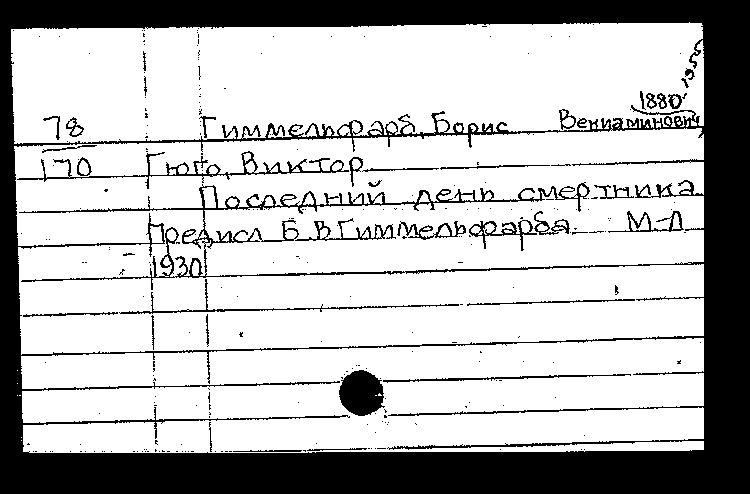 1880-1955
78 Гиммельфарб, Борис Вениаминович,
170 Гюго, Виктор
Последний день смертника
Предисл Б. В Гиммельфарба. М-Л
1930